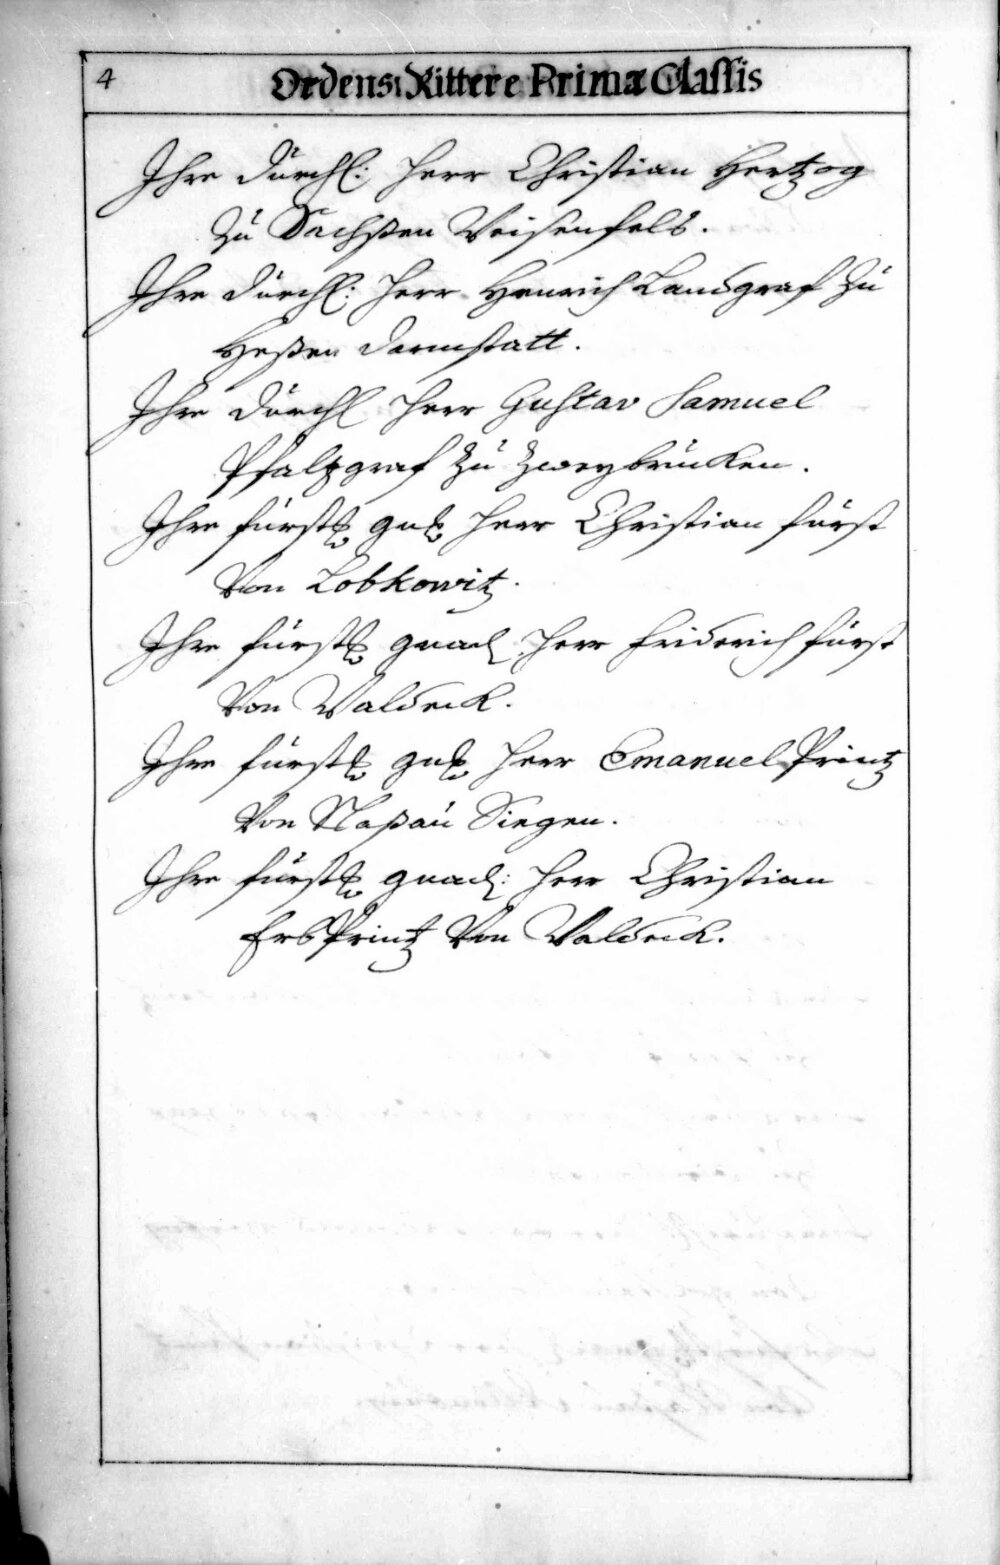 4
Ordens Rittere Primæ Classis
Ihre Dürchl: Herr Christian Hertzog
Zü Sachßen Weisenfels.
Ihre Dürchl: Herr Henrich Landgraf Zü
Heßen Darmstatt.
Ihre Dürchl Herr Gustav Samuel
Pfaltzgraf Zü Zweybrücken.
Ihre fürstl gnl Herr Christian fürst
Von Lobkowitz.
Ihre fürstl gnad Herr Friderich fürst
Von Waldeck.
Ihre fürstl gnl Herr Emanuel Printz
Von Naßaü Siegen.
Ihre fürstl gnad: Herr Christian
ErbPrintz Von Waldeck.